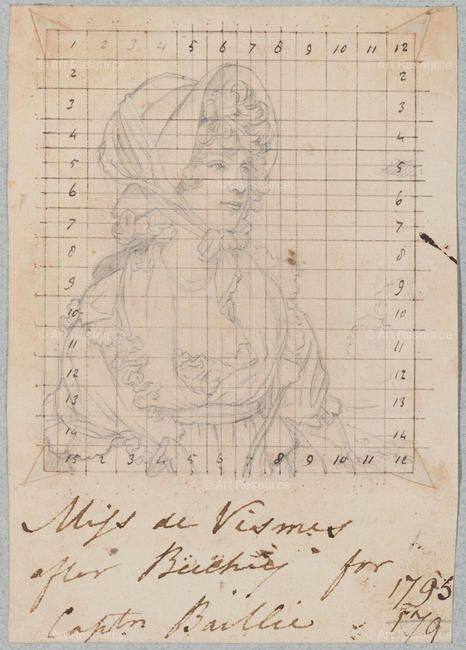 1 2 3 4 5 6 7 8 9 10 11 12
2 2
3 3
4 4
5 5
6 6
7 7
8 8
9 9
10 10
11 11
12 12
13 13
14 14
15 2 3 4 5 6 7 8 9 10 11 12
Miss de Vismes
after Beechey for
1795
Captn Baillie
© Art Resource
© Art Resource
© Art Resource
© Art Resource
© Art Resource
© Art Resource
© Art Resource
© Art Resource